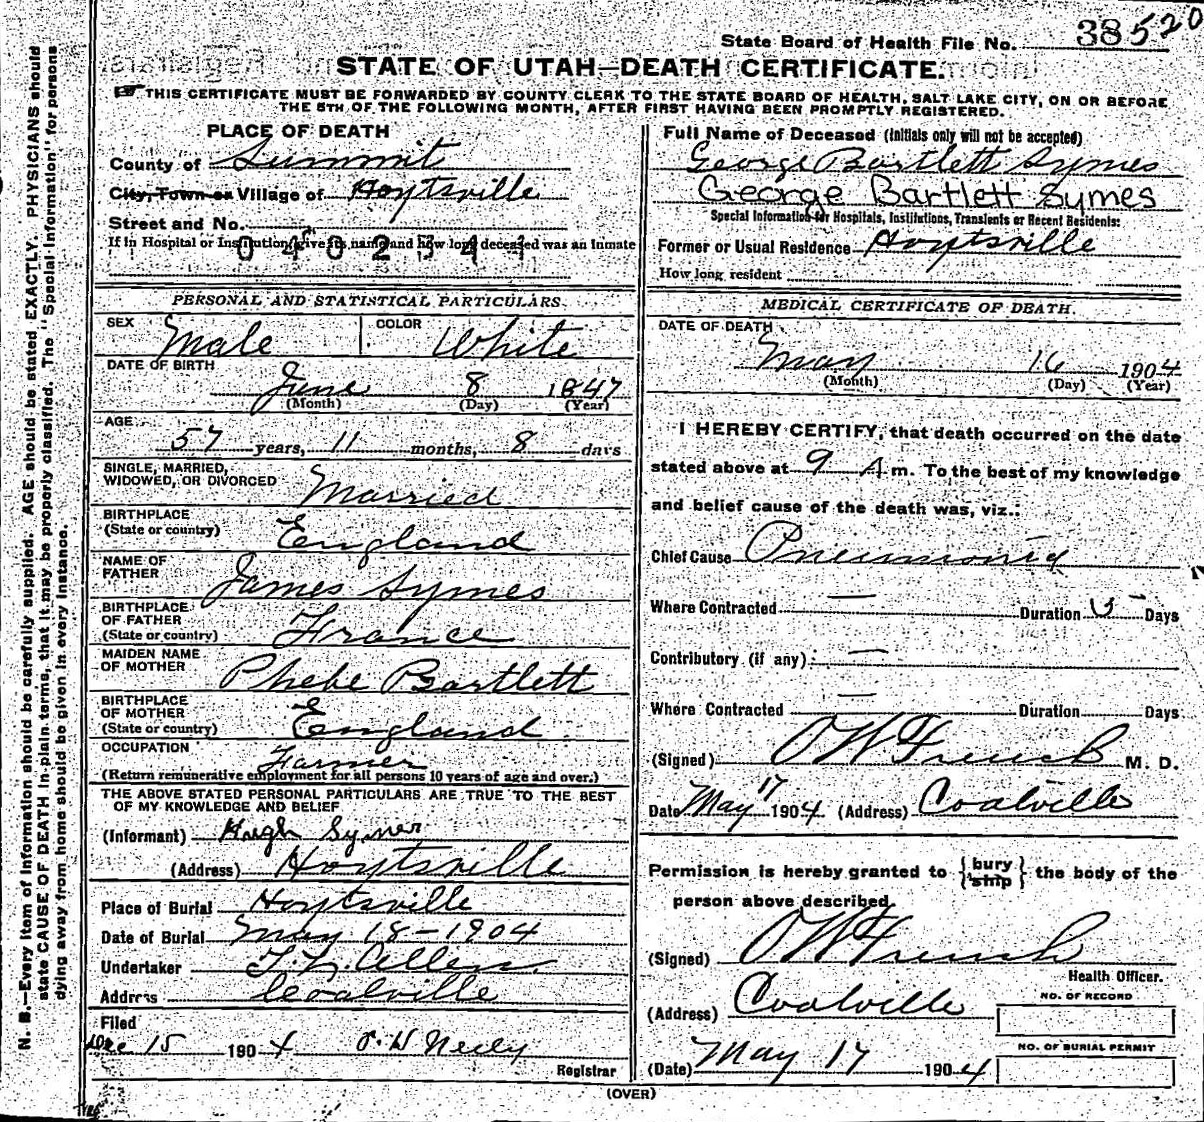 State Board of Health File No. 38520
STATE OF UTAH—DEATH CERTIFICATE.
THIS CERTIFICATE MUST BE FORWARDED BY COUNTY CLERK TO THE STATE BOARD OF HEALTH, SALT LAKE CITY, ON OR BEFORE
THE 5TH OF THE FOLLOWING MONTH, AFTER FIRST HAVING BEEN PROMPTLY REGISTERED.
PLACE OF DEATH
County of Summit
City, Town or Village of Hoytsville
Street and No.
If in Hospital or Institution, give its name and how long deceased was an Inmate
0402341
PERSONAL AND STATISTICAL PARTICULARS.
SEX Male COLOR White
DATE OF BIRTH
June 8 1847
(Month) (Day) (Year)
AGE
57 years, 11 months, 8 days
SINGLE, MARRIED,
WIDOWED, OR DIVORCED Married
BIRTHPLACE
(State or country) England
NAME OF
FATHER James Symes
BIRTHPLACE
OF FATHER
(State or country) France
MAIDEN NAME
OF MOTHER Phebe Bartlett
BIRTHPLACE
OF MOTHER
(State or country) England
OCCUPATION Farmer
(Return remunerative employment for all persons 10 years of age and over.)
THE ABOVE STATED PERSONAL PARTICULARS ARE TRUE TO THE BEST
OF MY KNOWLEDGE AND BELIEF
(Informant) Hugh Symes
(Address) Hoytsville
Place of Burial Hoytsville
Date of Burial May 18-1904
Undertaker Allen
Address Coalville
Filed
Dec 15 1904
Registrar
Full Name of Deceased (Initials only will not be accepted)
George Bartlett Symes
George Bartlett Symes
Special Information for Hospitals, Institutions, Transients or Recent Residents:
Former or Usual Residence Hoytsville
How long resident
MEDICAL CERTIFICATE OF DEATH.
DATE OF DEATH
May 16 1904
(Month) (Day) (Year)
I HEREBY CERTIFY, that death occurred on the date
stated above at 9 A m. To the best of my knowledge
and belief cause of the death was, viz.:
Chief Cause Pneumonia
Where Contracted — Duration 5 Days
Contributory (if any) : —
Where Contracted — Duration Days
(Signed) O W French M. D.
Date May 17 1904 (Address) Coalville
Permission is hereby granted to {bury
ship} the body of the
person above described.
(Signed) O W French
Health Officer.
(Address) Coalville
NO. OF RECORD
NO. OF BURIAL PERMIT
(Date) May 17 1904
(OVER)
N. B.—Every item of information should be carefully supplied. AGE should be stated EXACTLY. PHYSICIANS should
state CAUSE OF DEATH in plain terms, that it may be properly classified. The "Special Information" for persons
dying away from home should be given in every instance.